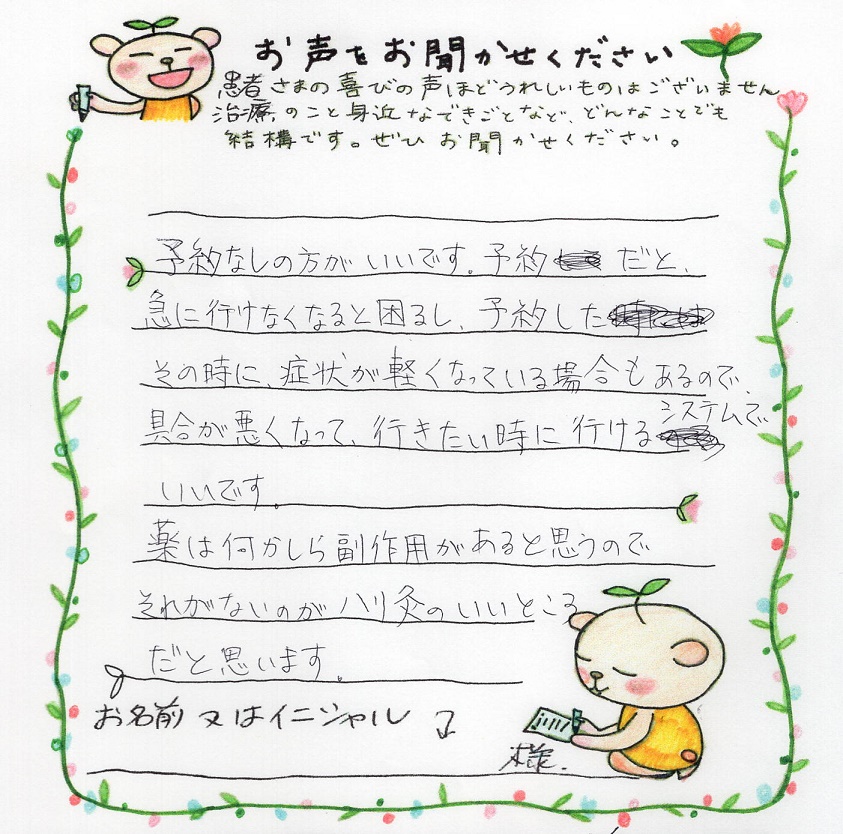 お声をお聞かせください
患者さまの喜びの声ほどうれしいものはございません
治療のこと身近なできごとなど、どんなことでも
結構です。ぜひお聞かせください。
予約なしの方がいいです。予約だと、
急に行けなくなると困るし、予約した
その時に、症状が軽くなっている場合もあるので、
具合が悪くなって、行きたい時に行けるシステムで
いいです。
薬は何かしら副作用があると思うので
それがないのがハリ灸のいいところ
だと思います。
お名前又はイニシャル
様.